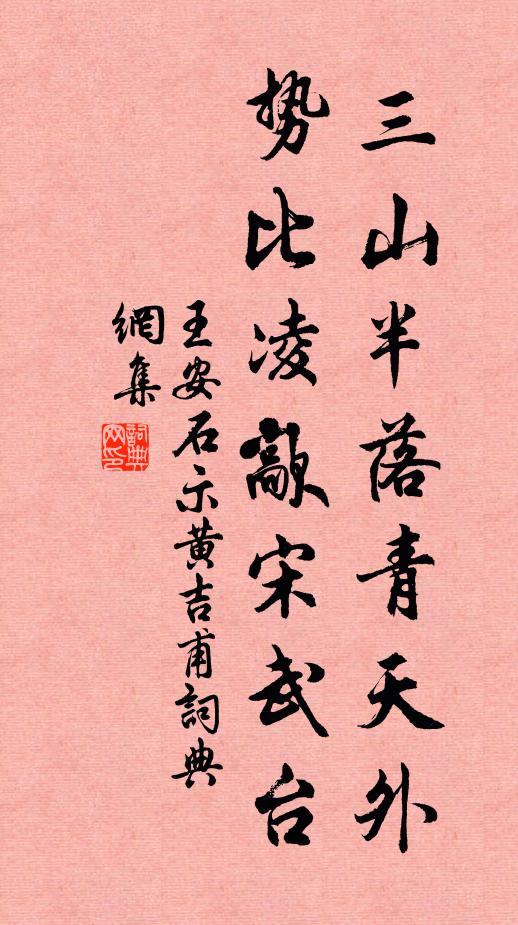 三山半落青天外
势比凌歊宋武台
王安石示黄吉甫詞典
網集
詞典
网印